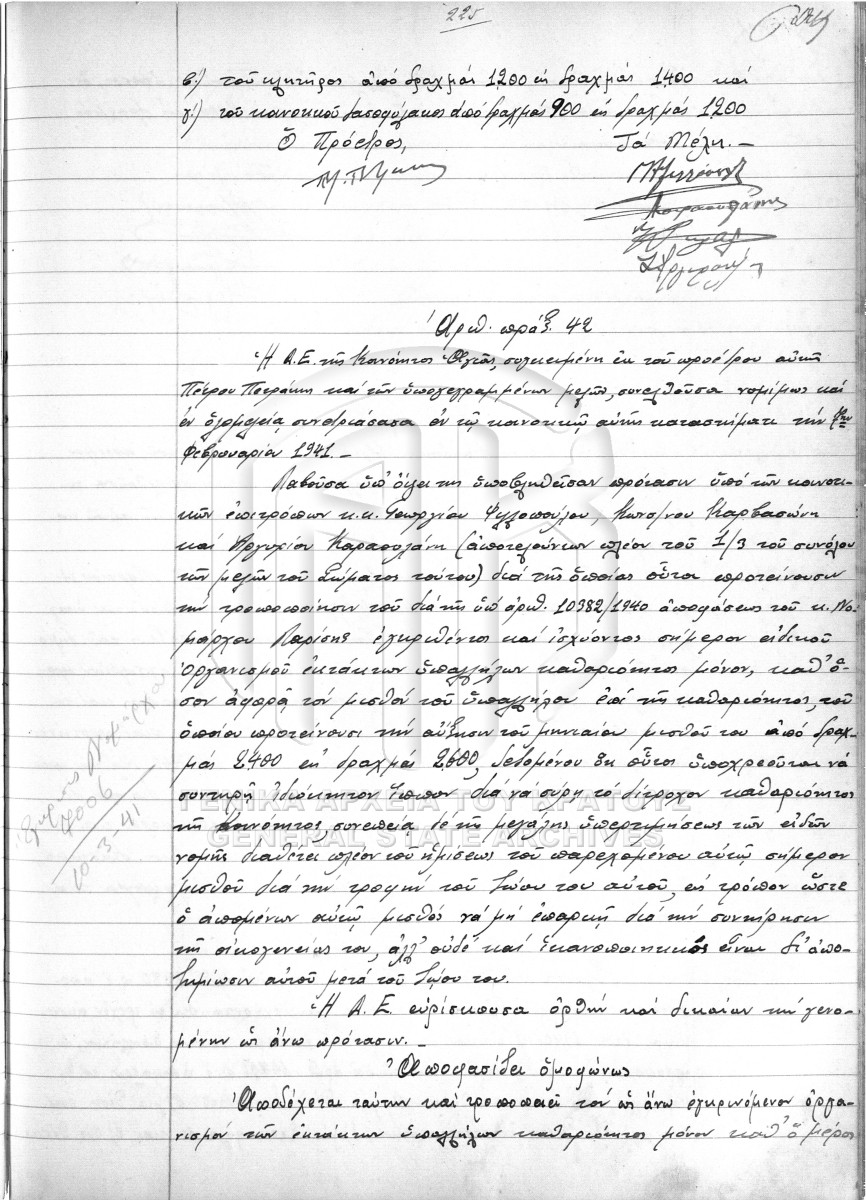 225
β.) τοῦ κλητῆρος ἀπό δραχμάς 1200 εἰς δραχμάς 1400 καί
γ.) τοῦ κοινοτικοῦ δασοφύλακος ἀπό δραχμάς 900 εἰς δραχμάς 1200
Ὁ Πρόεδρος, Τά Μέλη. —
Ἀριθ. πράξ. 42
Ἡ Δ.Ε. τῆς Κοινότητος Ἁγιᾶς, συγκειμένη ἐκ τοῦ προέδρου αὐτῆς
Πέτρου Πετράκη καί τῶν ὑπογεγραμμένων μελῶν, συνελθοῦσα νομίμως καί
ἐν ὁλομελείᾳ συνεδριάσασα ἐν τῷ κοινοτικῷ αὐτῆς καταστήματι τήν
Φεβρουαρίου 1941. —
Λαβοῦσα ὑπ' ὄψει της ὑποβληθεῖσαν πρότασιν ὑπό τῶν κοινοτι-
κῶν ἐπιτρόπων κ.κ. Γεωργίου Φιλλοπούλου, Κωνσ/νου Καρβασώνη
καί Ἀργυρίου Καραουλάνη (ἀποτελούντων πλέον τοῦ 1/3 τοῦ συνόλου
τῶν μελῶν τοῦ Σώματος τούτου) διά τῆς ὁποίας οὗτοι προτείνουσιν
τήν τροποποίησιν τοῦ διά τῆς ὑπ' ἀριθ. 10982/1940 ἀποφάσεως τοῦ κ. Νο-
μάρχου Λαρίσης ἐγκριθέντος καί ἰσχύοντος σήμερον εἰδικοῦ
Ὀργανισμοῦ ἐκτάκτων ὑπαλλήλων καθαριότητος μόνον, καθ' ὅ-
σον ἀφορᾷ τόν μισθόν τοῦ ὑπαλλήλου ἐπί τῆς καθαριότητος, τοῦ
ὁποίου προτείνουσι τήν αὔξησιν τοῦ μηνιαίου μισθοῦ του ἀπό δραχ-
μάς 2400 εἰς δραχμάς 2600, δεδομένου ὅτι οὗτος ὑποχρεοῦται νά
συντηρῇ ἰδιόκτητον ἵππον διά νά σύρῃ τό δίτροχον καθαριότητος
τῆς Κοινότητος, συνεπείᾳ δέ τῆς μεγάλης ὑπερτιμήσεως τῶν εἰδῶν
νομῆς διαθέτει πλέον τοῦ ἡμίσεως τοῦ παρεχομένου αὐτῷ σήμερον
μισθοῦ διά τήν τροφήν τοῦ ζώου του αὐτοῦ, εἰς τρόπον ὥστε
ὁ ἀπομένων αὐτῷ μισθός νά μή ἐπαρκῇ διά τήν συντήρησιν
τῆς οἰκογενείας του, ἀλλ' οὐδέ καί ἱκανοποιητικός εἶναι δι' ἀπο-
ζημίωσιν αὐτοῦ μετά τοῦ ζώου του.
Ἡ Δ.Ε. εὑρίσκουσα ὀρθήν καί δικαίαν τήν γενο-
μένην ὡς ἄνω πρότασιν. —
Ἀποφασίζει ὁμοφώνως
Ἀποδέχεται ταύτην καί τροποποιεῖ τόν ὡς ἄνω ἐγκρινόμενον ὀργα-
νισμόν τῶν ἐκτάκτων ὑπαλλήλων καθαριότητος μόνον καθ' ὅ μέρος
Νομάρχου
4006
10-3-41
ΓΕΝΙΚΑ ΑΡΧΕΙΑ ΤΟΥ ΚΡΑΤΟΥΣ
GENERAL STATE ARCHIVES